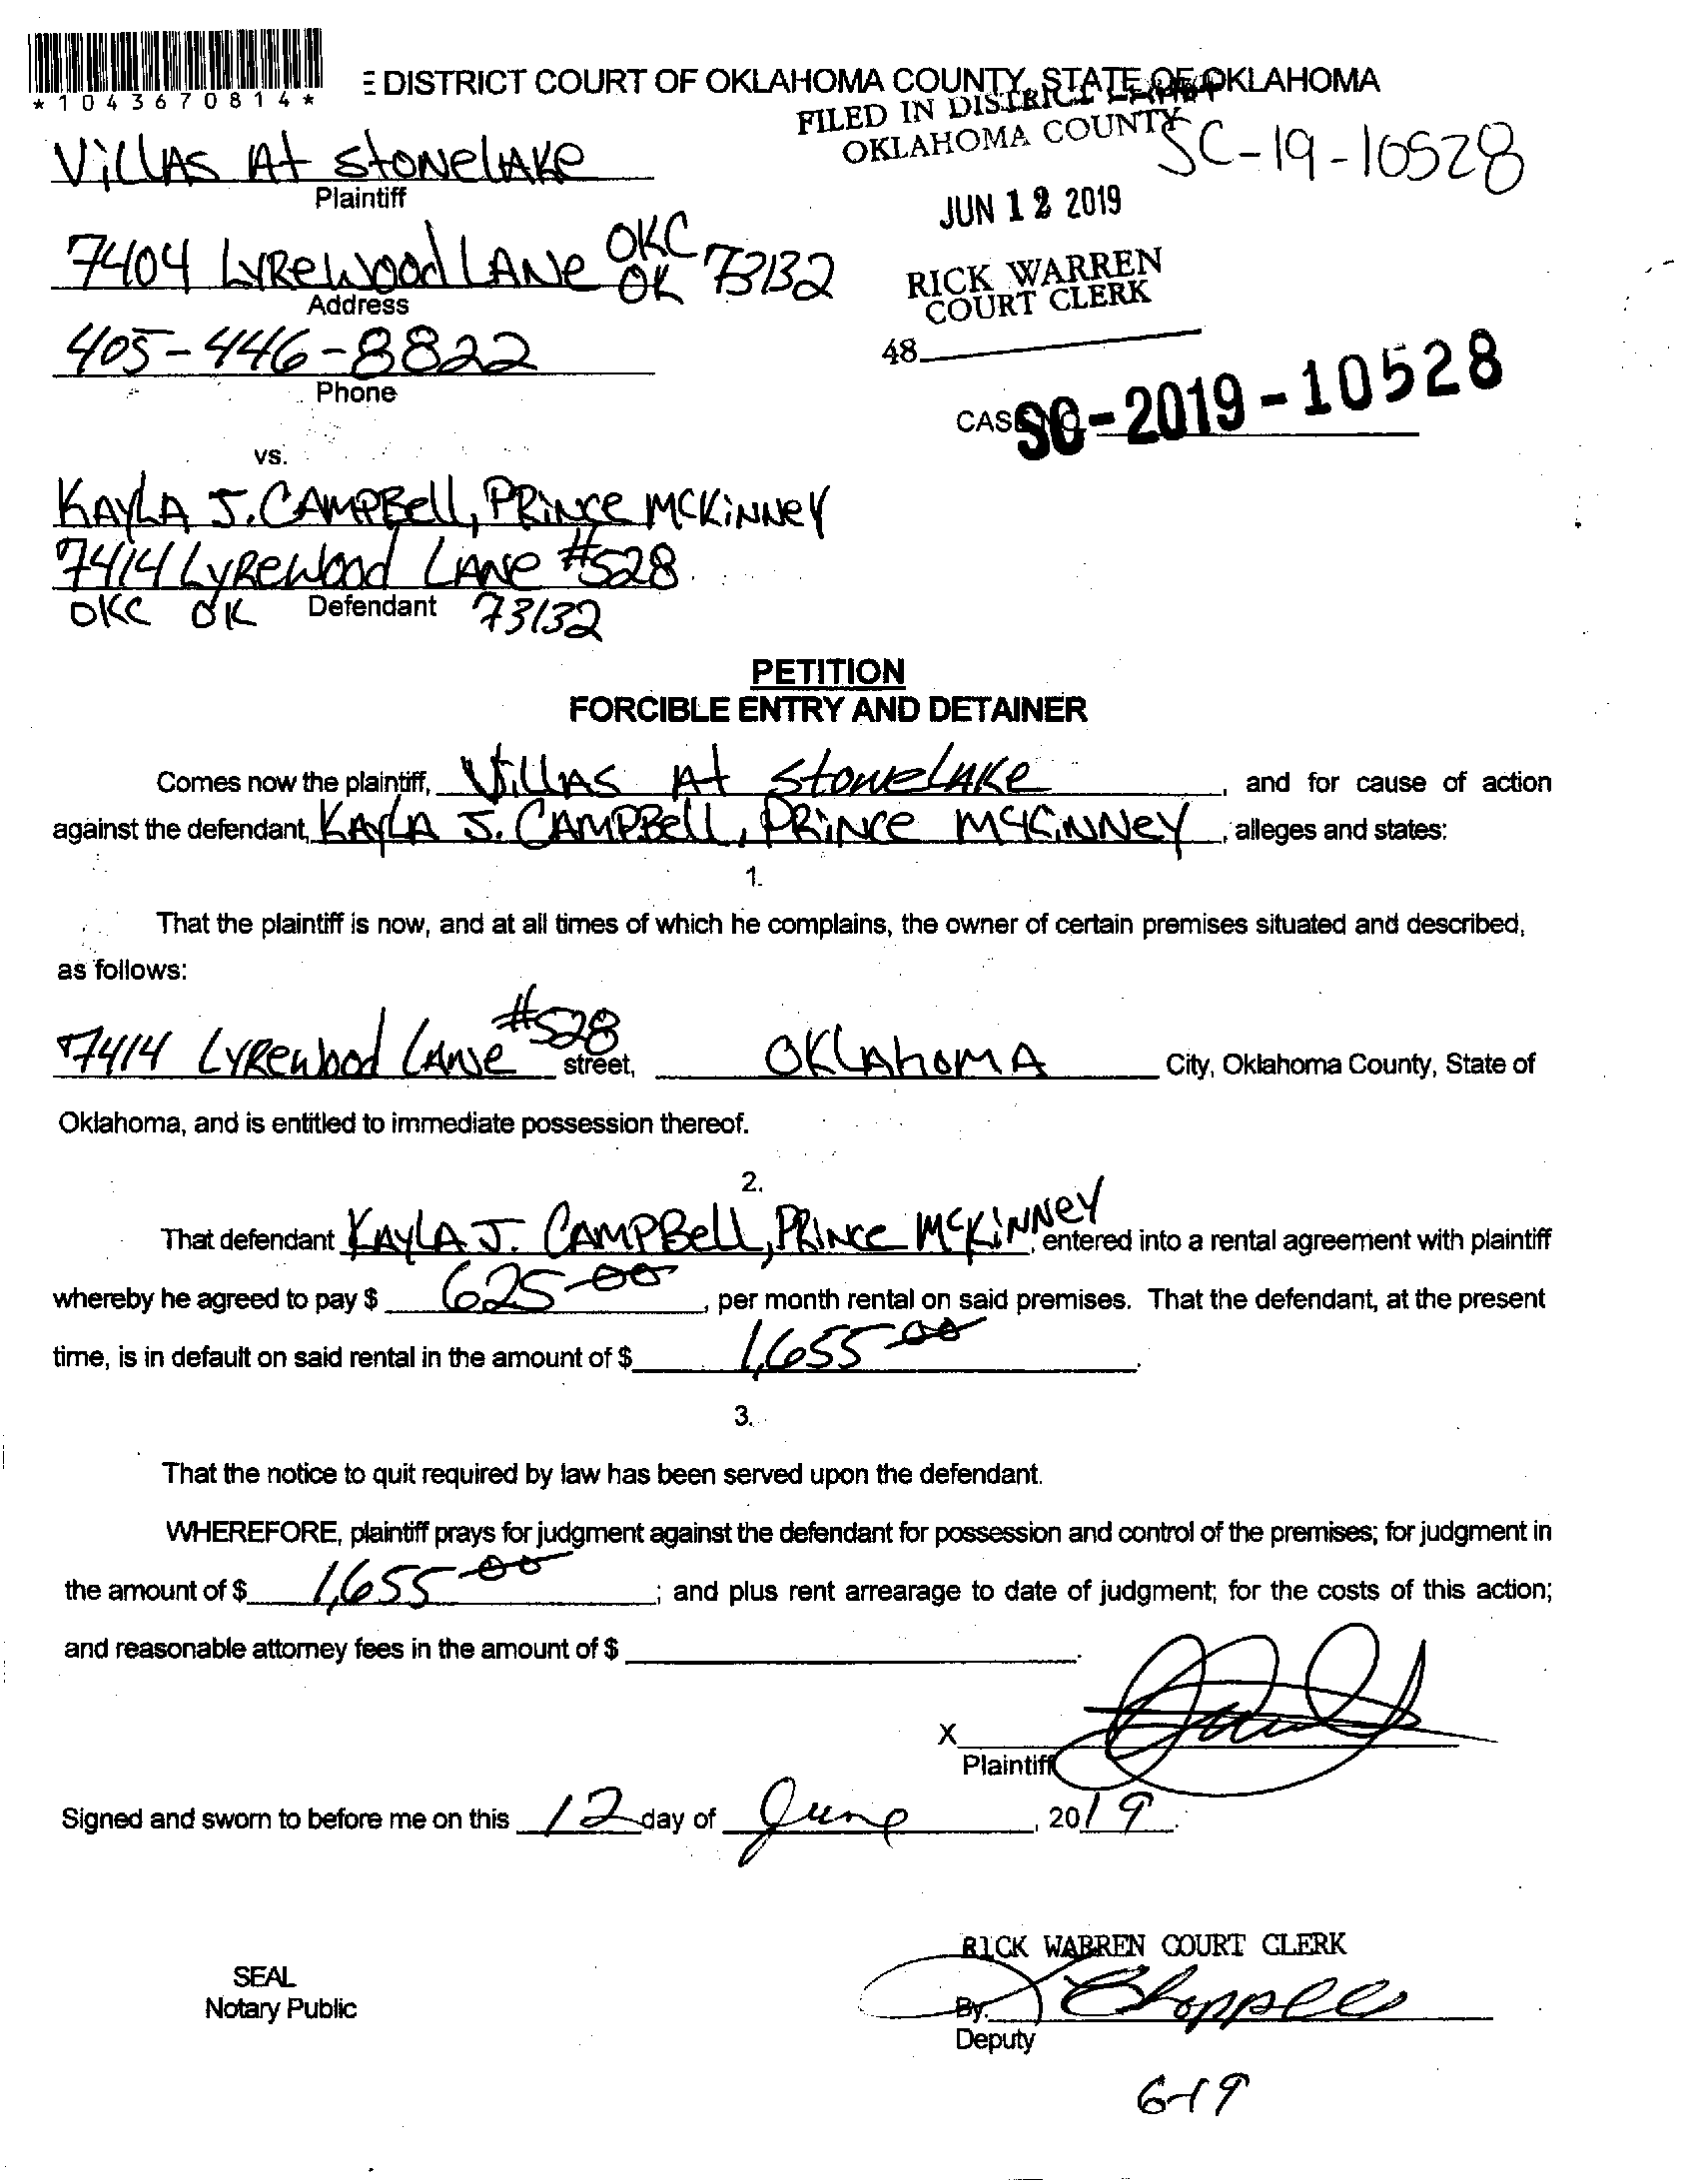 *1043670814*
E DISTRICT COURT OF OKLAHOMA COUNTY, STATE OF OKLAHOMA
FILED IN DISTRICT COURT
OKLAHOMA COUNTY
SC-19-10528
Villas At Stonelake
Plaintiff
JUN 12 2019
7404 Lyrewood Lane OKC OK 73132
Address
RICK WARREN
COURT CLERK
405-446-8822
Phone
48
CASE NO. SC-2019-10528
vs.
Kayla J. Campbell, Prince McKinney
7414 Lyrewood Lane #528
OKC OK 73132
Defendant
PETITION
FORCIBLE ENTRY AND DETAINER
Comes now the plaintiff, Villas At Stonelake, and for cause of action
against the defendant, Kayla J. Campbell, Prince McKinney, alleges and states:
1.
That the plaintiff is now, and at all times of which he complains, the owner of certain premises situated and described,
as follows:
7414 Lyrewood Lane #528 street, Oklahoma City, Oklahoma County, State of
Oklahoma, and is entitled to immediate possession thereof.
2.
That defendant Kayla J. Campbell, Prince McKinney, entered into a rental agreement with plaintiff
whereby he agreed to pay $ 625-00, per month rental on said premises. That the defendant, at the present
time, is in default on said rental in the amount of $ 1,655-00.
3.
That the notice to quit required by law has been served upon the defendant.
WHEREFORE, plaintiff prays for judgment against the defendant for possession and control of the premises; for judgment in
the amount of $ 1,655-00; and plus rent arrearage to date of judgment; for the costs of this action;
and reasonable attorney fees in the amount of $
X
Plaintiff
Signed and sworn to before me on this 12 day of June, 2019.
RICK WARREN COURT CLERK
SEAL
Notary Public
By.
Deputy
6-19